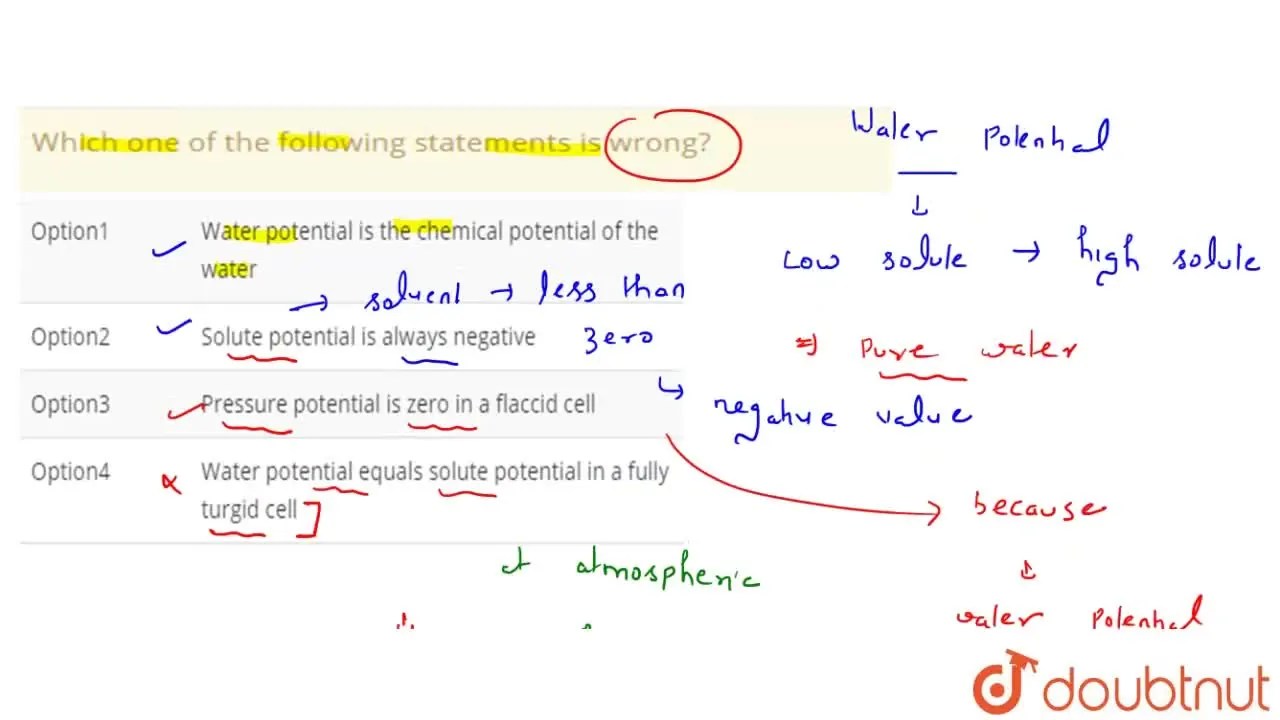 Which one of the following statements is wrong?
Water Potenhal
Option1 Water potential is the chemical potential of the
water
Low solute → high solute
→ solvent → less than
zero
Option2 Solute potential is always negative
⇒ Pure water
Option3 Pressure potential is zero in a flaccid cell
↳ negative value
Option4 Water potential equals solute potential in a fully
turgid cell
→ because
at atmospheric
water Potenhal
doubtnut